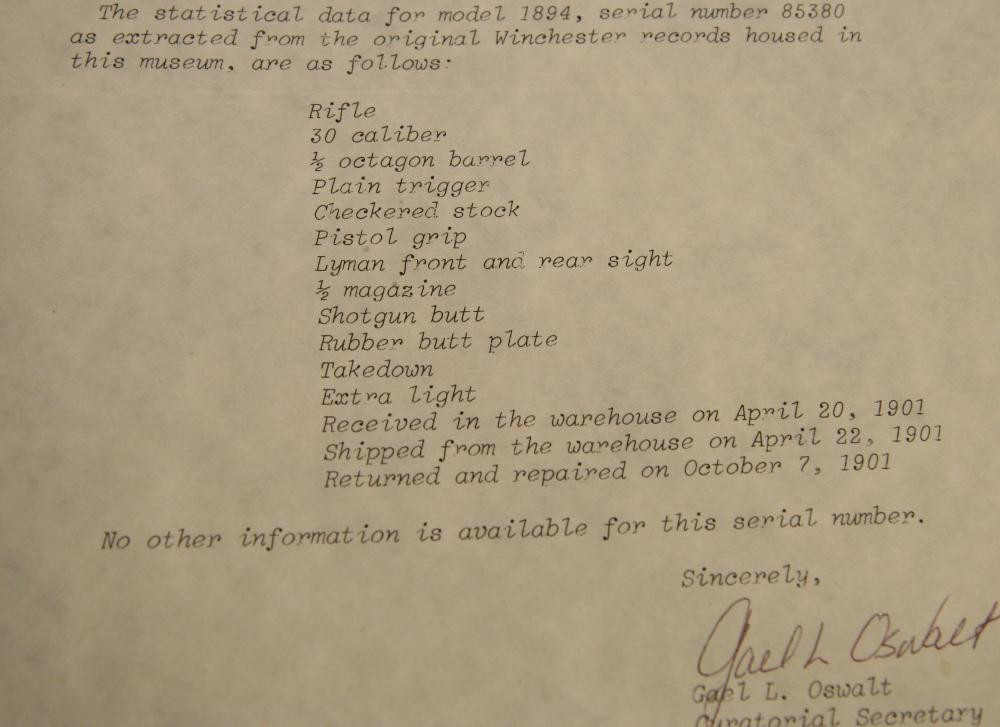 The statistical data for model 1894, serial number 85380
as extracted from the original Winchester records housed in
this museum, are as follows:
Rifle
30 caliber
½ octagon barrel
Plain trigger
Checkered stock
Pistol grip
Lyman front and rear sight
½ magazine
Shotgun butt
Rubber butt plate
Takedown
Extra light
Received in the warehouse on April 20, 1901
Shipped from the warehouse on April 22, 1901
Returned and repaired on October 7, 1901
No other information is available for this serial number.
Sincerely,
Gael L Oswalt
Gael L. Oswalt
Curatorial Secretary